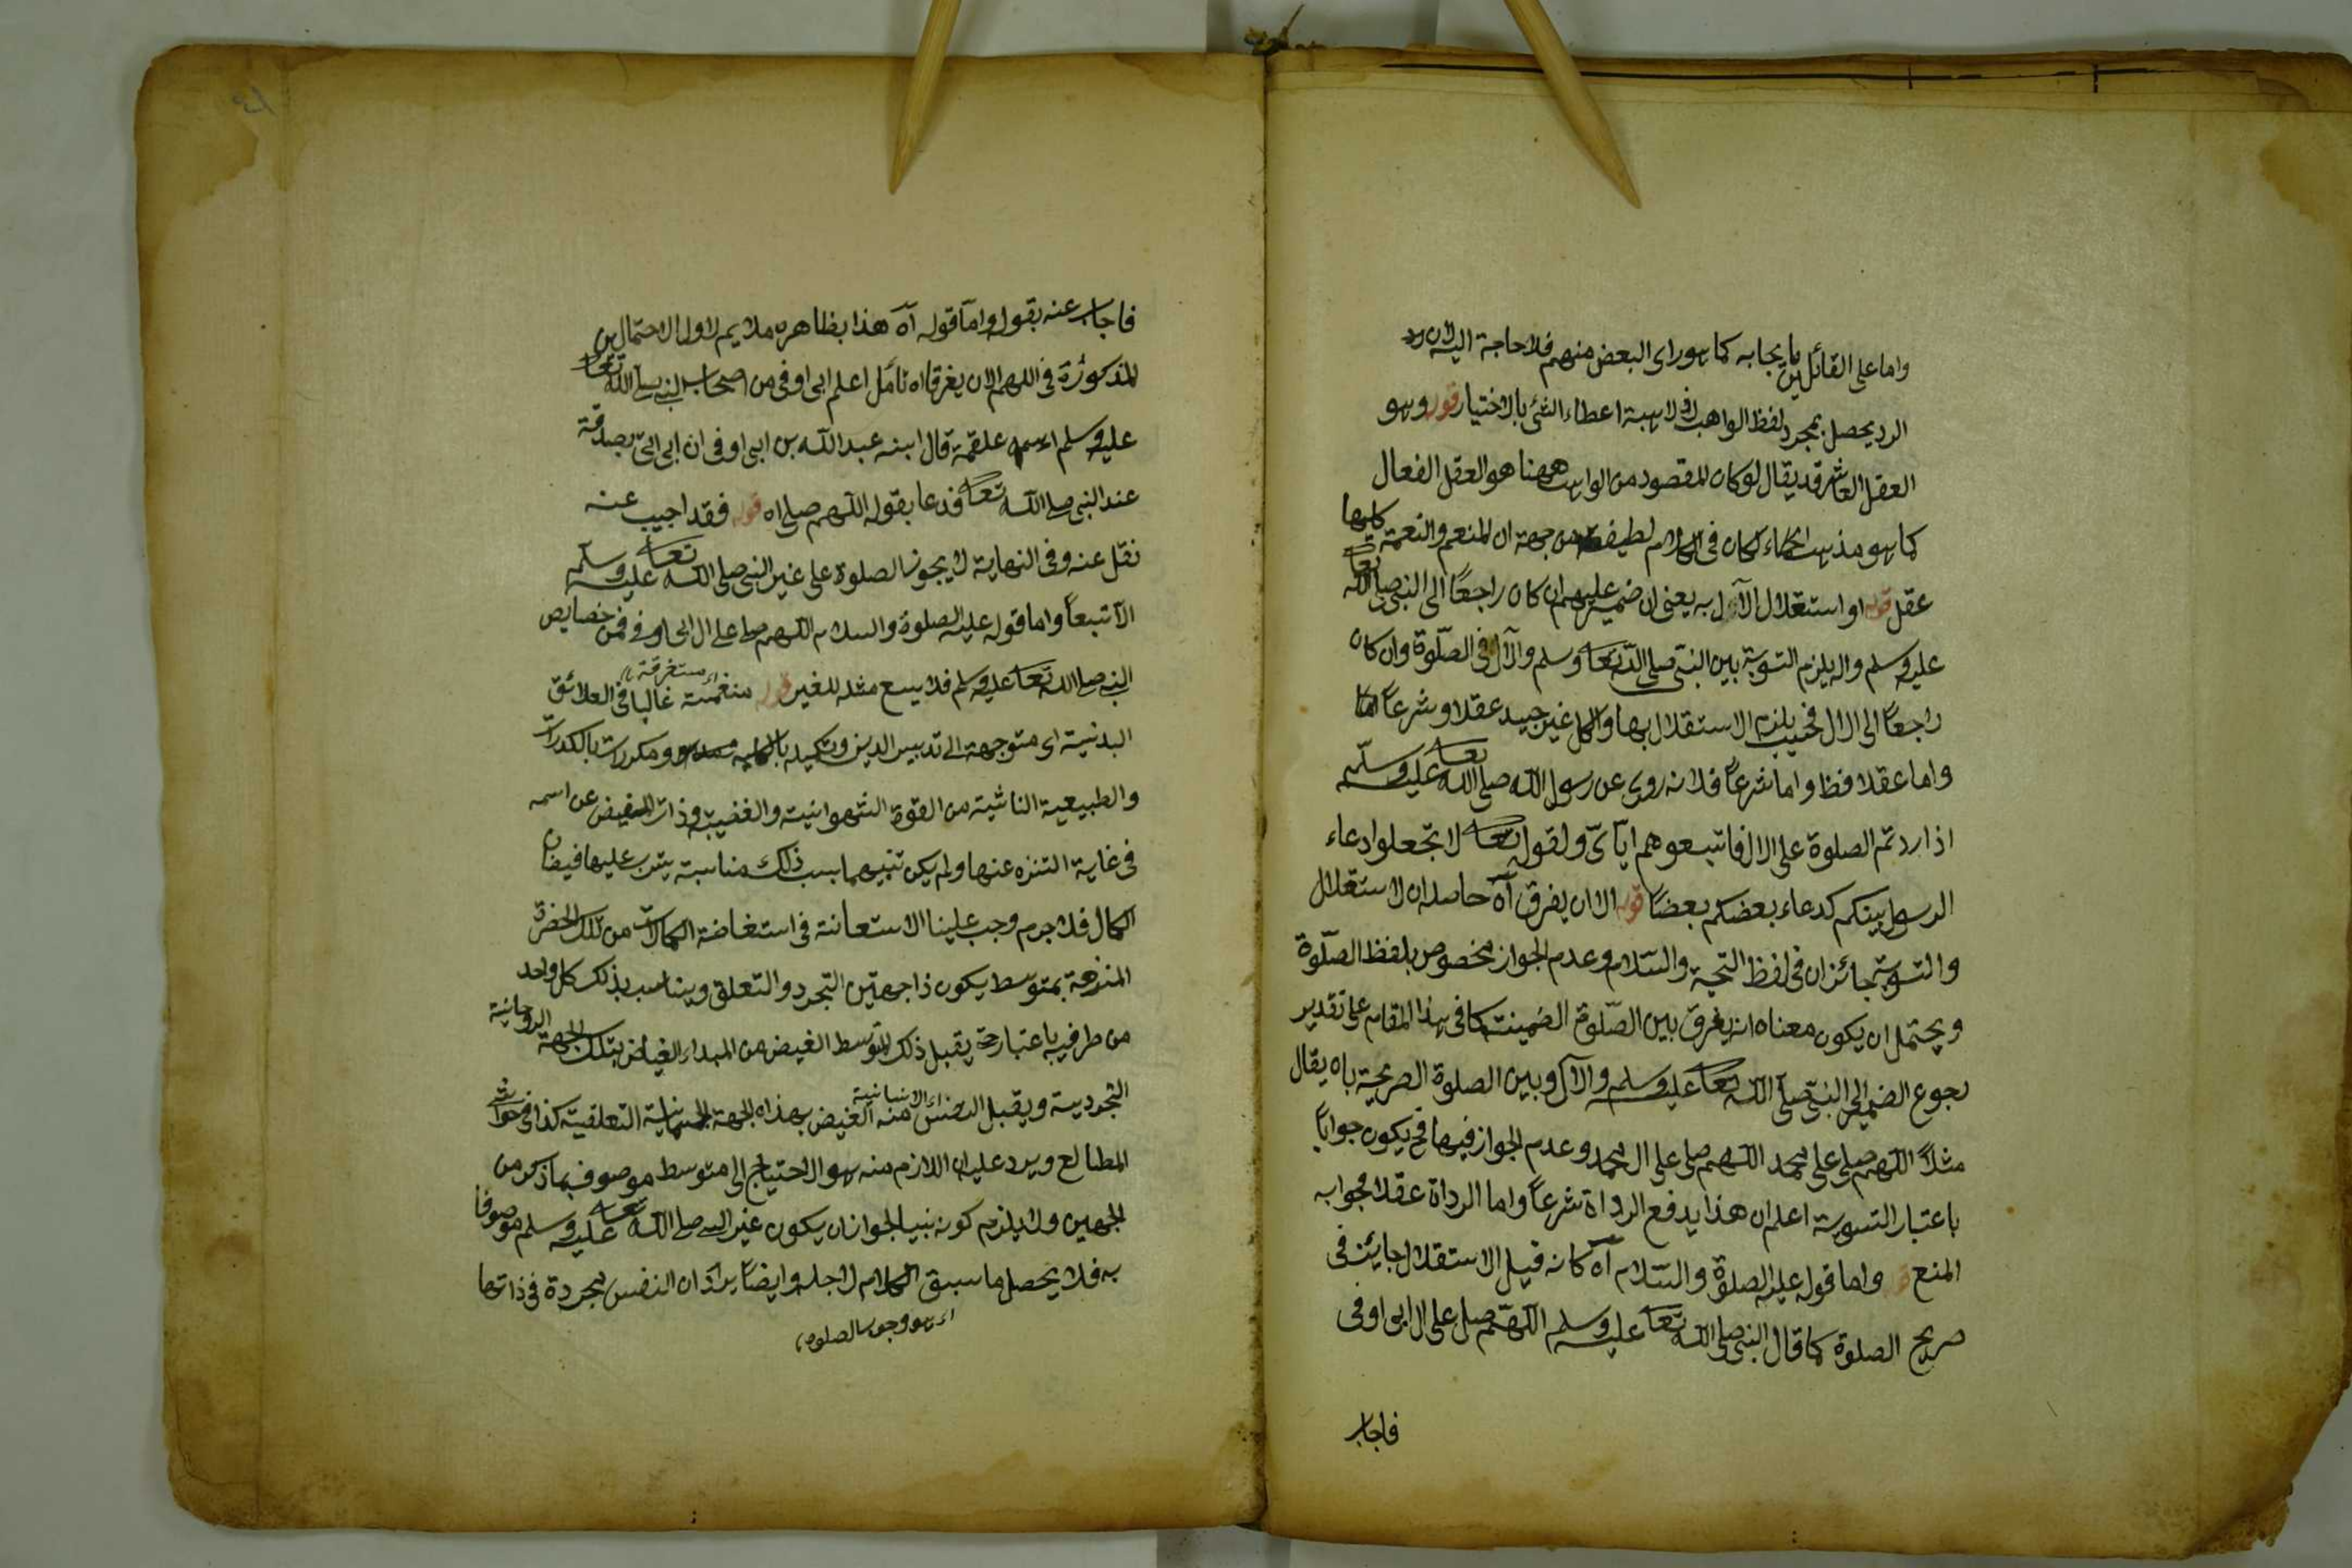 واما على القائلين بايجابه كما هو راى البعض منهم فلا حاجة اليه لان
الرد يحصل بمجرد لفظ الواهب اذ الهبة اعطاء الشئ بالاختيار قوله وهو
العقل العاشر قد يقال لو كان المقصود من الواهب ههنا هو العقل الفعال
كما هو مذهب الحكماء لكان فى الكلام لطيفة من جهة ان المنعم والنعمة كليهما
عقل قوله او استقلال الآل به يعنى ان ضمير عليهم ان كان راجعًا الى النبى صلى الله تعا
عليه وسلم واله يلزم التسوية بين النبى صلى الله تعا وسلم والآل فى الصلوة وان كان
راجعًا الى الال فحينئذ يلزم الاستقلال بها والكل غير جيد عقلا وشرعًا اما
واما عقلا فظ واما شرعًا فلانه روى عن رسول الله صلى الله تعا عليه وسلم
اذا ردتم الصلوة على الال فاتبعوهم اياى ولقوله تعا لا تجعلوا دعاء
الرسول بينكم كدعاء بعضكم بعضًا قوله الا ان يفرق آه حاصله ان الاستقلال
والتسوية جائزان فى لفظ التحية والسلام وعدم الجواز مخصوص بلفظ الصلوة
ويحتمل ان يكون معناه ان يفرق بين الصلوة الضمينة كما فى هذا المقام على تقدير
رجوع الضمير الى النبى صلى الله تعا عليه وسلم والآل وبين الصلوة الصريحة بان يقال
مثلاً اللهم صلى على محمد اللهم صلى على ال محمد وعدم الجواز فيها فح يكون جوابًا
باعتبار التسوية اعلم ان هذا يدفع الرداة شرعًا واما الرداة عقلا فجوابه
المنع قوله واما قوله عليه الصلوة والسلام آه كانه قيل الاستقلال جايئز فى
صريح الصلوة كما قال النبى صلى الله تعا عليه وسلم اللهم صل على ال ابى اوفى
فاجاب
فاجاب عنه بقوله واما قوله آه هذا بظاهره ملايم لاول الاحتمالين
المذكورة فى اللهم الا ان يفرق اه تأمل اعلم ابى اوفى من اصحاب النبى صلى الله تعا
عليه وسلم اسمه علقمة قال ابنه عبد الله بن ابى اوفى ان ابى اتى بصدقة
عند النبى صلى الله تعا فدعا بقوله اللهم صلى اه قوله فقد اجيب عنه
نقل عنه وفى النهاية لا يجوز الصلوة على غير النبى صلى الله تعا عليه وسلم
الا تبعًا واما قوله عليه الصلوة والسلام اللهم صل على ال ابى اوفى فمن خصايص
النبى صلى الله تعا عليه وسلم فلا يسع مثله للغير قوله منغمسة غالبا فى العلائق
اى مستغرقة
البدنية اى متوجهة الى تدبير البدن وتكميله بالكلية ومكدرات بالكدرات
والطبيعية الناشية من القوة الشهوانية والغضبية وذات المفيض عن اسمه
فى غاية التنزه عنها ولم يكن بينهما بسبب ذلك مناسبة يترتب عليها فيضان
الكمال فلا جرم وجب علينا الاستعانة فى استفاضة الكمالات من تلك الحضرة
المنزهة بمتوسط يكون ذا جهتين التجرد والتعلق ويناسب بذلك كل واحد
من طرفيه باعتبار حتى يقبل ذلك المتوسط الفيض من المبداء الفياض بتلك الجهة الروحانية
التجردية ويقبل النفس منه الفيض بهذه الجهة الجسمانية التعلقية كذا فى حواشى
اى الانسانية
المطالع ويرد عليه ان اللازم منه هو الاحتياج الى متوسط موصوف بما ذكر من
الجهتين ولا يلزم كونه نبيا لجواز ان يكون غير النبى صلى الله تعا عليه وسلم موصوفا
به فلا يحصل ما سبق الكلام لاجله وايضًا يراد ان النفس مجردة فى ذاتها
اى هو وجوب الصلوة